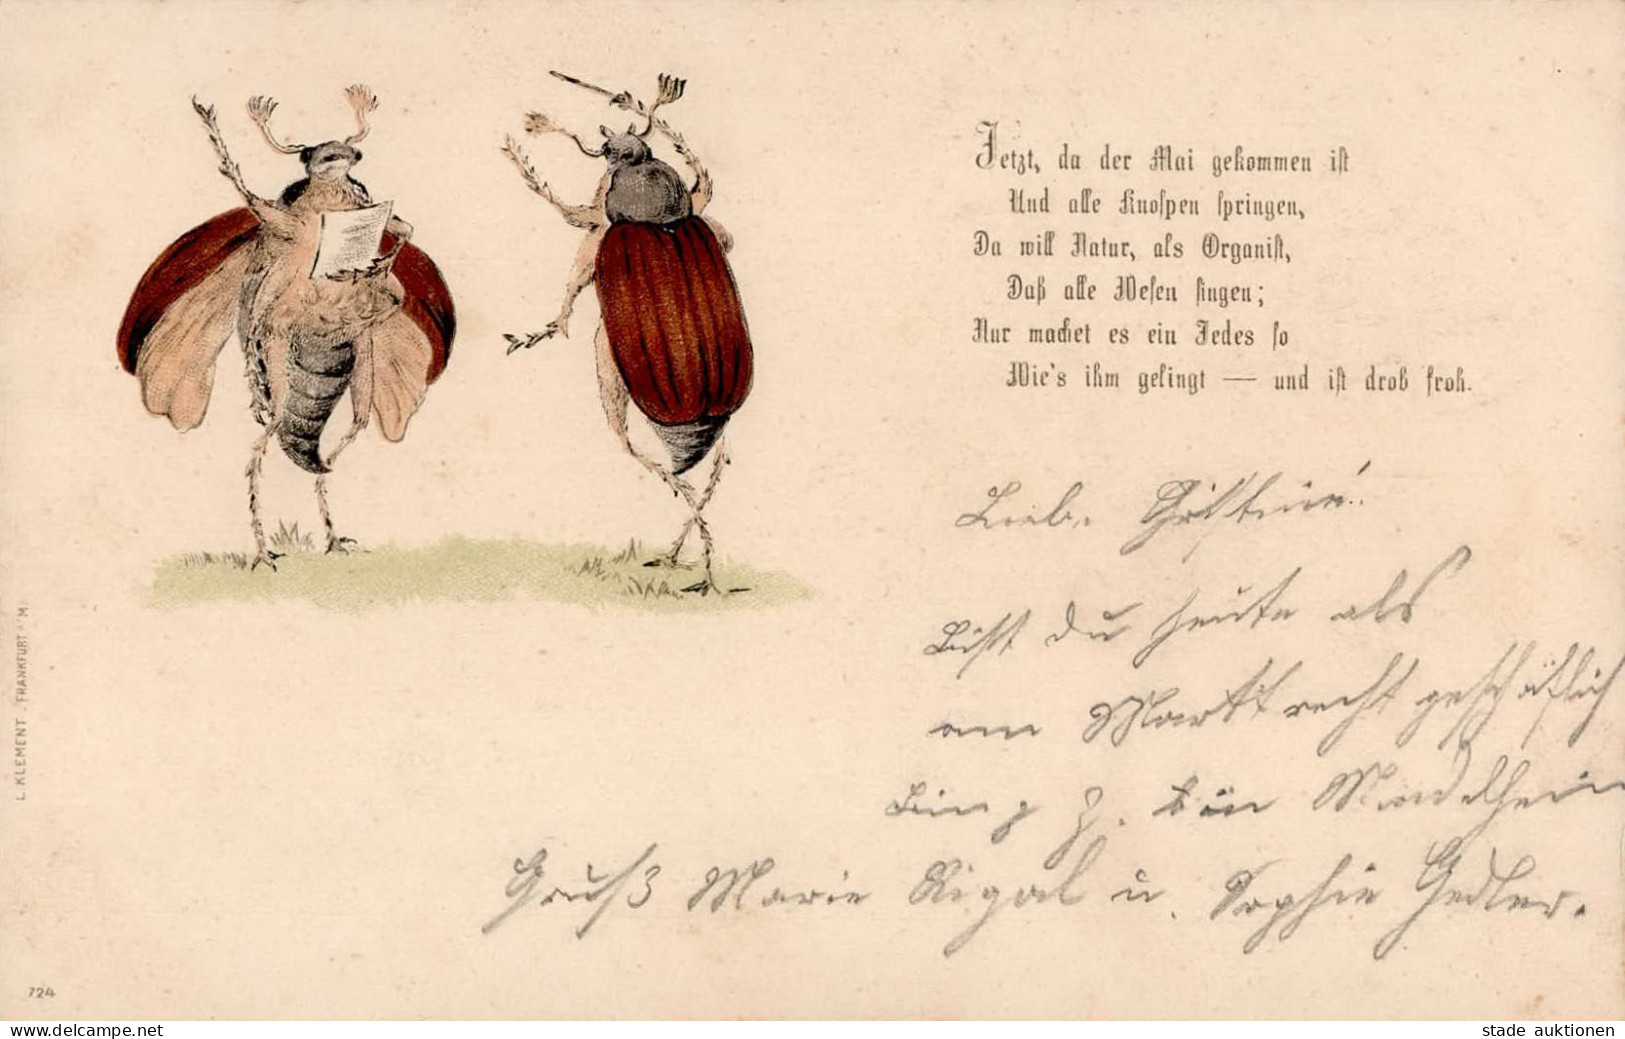 Jetzt, da der Mai gekommen ist
Und alle Knospen springen,
Da will Natur, als Organist,
Daß alle Wesen singen;
Nur machet es ein Jedes so
Wie's ihm gelingt — und ist drob froh.
Liebe
bist du heute als
am Markt recht geschäftlich
Gruß Marie Rigal u. Sophie Gedler.
L. KLEMENT . FRANKFURT a/M.
724
www.delcampe.net
stade auktionen